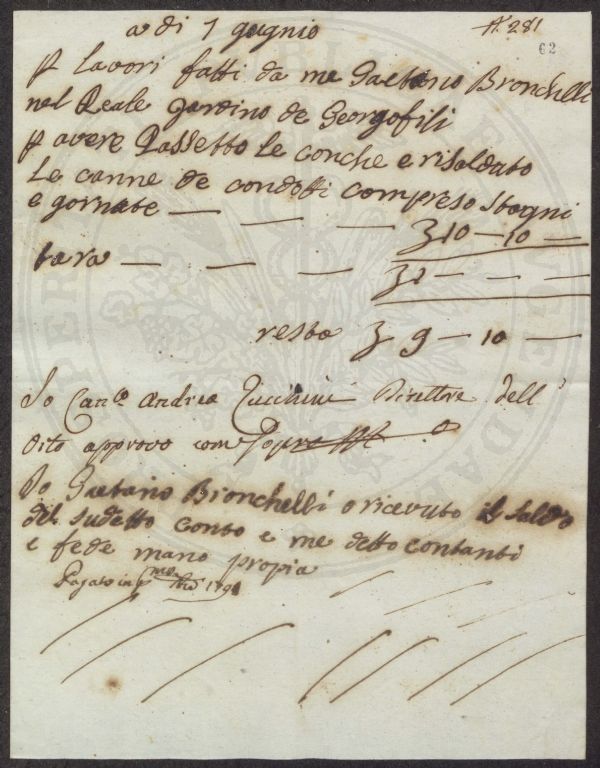 a di 1 gugnio
N. 281
62
p lavori fatti da me Gaetano Bronchelli
nel Reale gardino de Georgofili
p avere Rassetto le conche e risaldato
Le canne de condotti compreso stagni
e gornate — — — 10 — 10 —
tara — — —
resto 9 — 10 —
Io Can.co Andrea Zucchini Direttore dell'
Orto approvo come sopra
Io Gaetano Bronchelli o ricevuto il saldo
del sudetto conto e me detto contanti
e fede mano propia
Pagato in